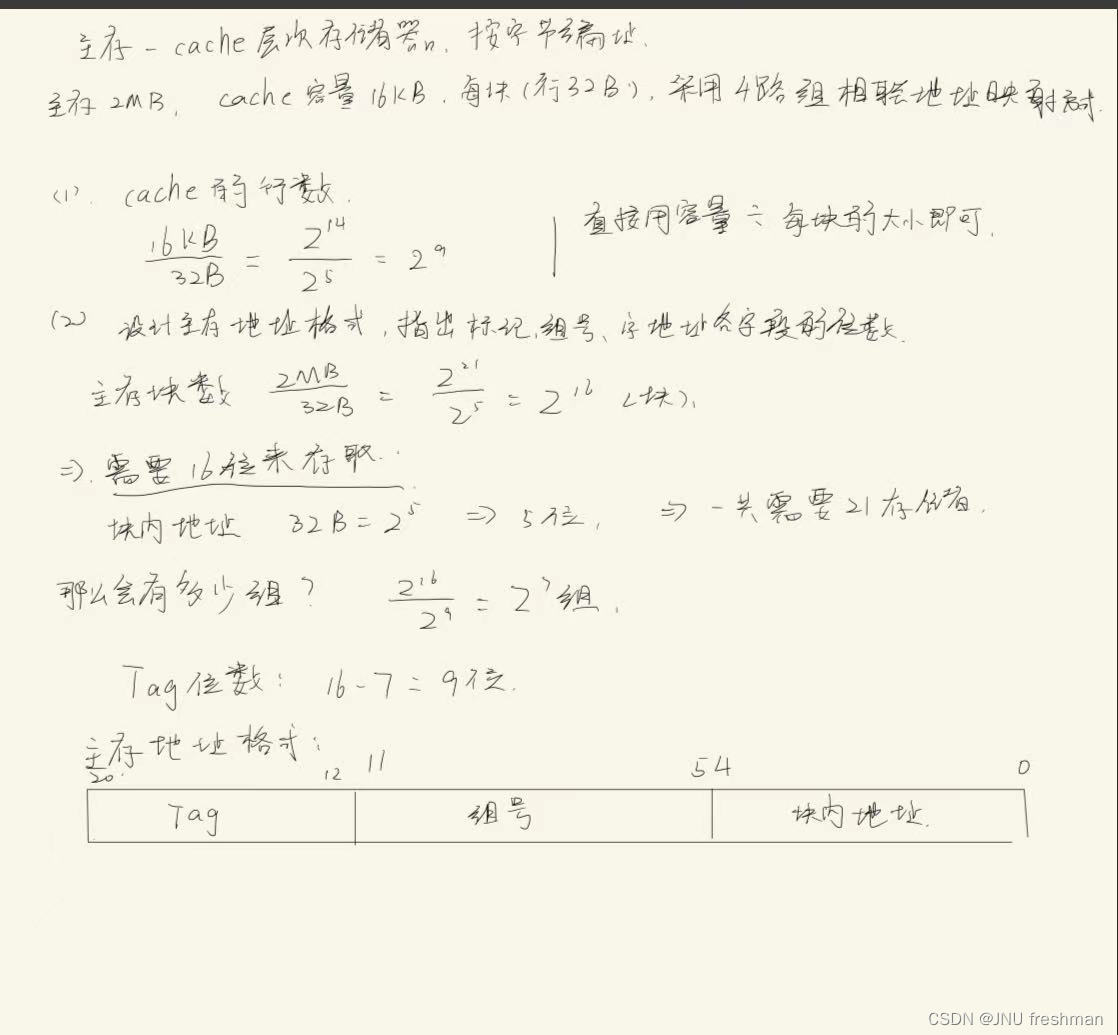 主存-cache层次存储器中，按字节编址.
主存2MB，cache容量16KB，每块(行32B)，采用4路组相联地址映射方式.
(1). cache的行数.
16KB/32B = 2^14/2^5 = 2^9
直接用容量÷每块的大小即可.
(2) 设计主存地址格式，指出标记、组号、字地址各字段的位数.
主存块数 2MB/32B = 2^21/2^5 = 2^16 (块).
⇒. 需要16位来存取..
块内地址 32B = 2^5 ⇒ 5位, ⇒ 一共需要21存储.
那么会有多少组？ 2^16/2^9 = 2^7组.
Tag位数： 16-7=9位.
主存地址格式：
20 12 11 5 4 0
Tag 组号 块内地址.
CSDN @JNU freshman